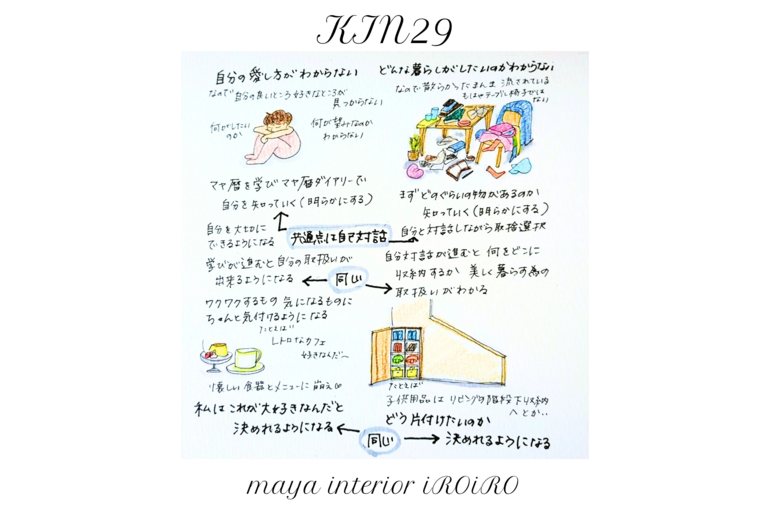 KIN29
自分の愛し方がわからない
なので自分の良いところ好きなところが
見つからない
何がしたい
のか
何が望みなのか
わからない
マヤ暦を学びマヤ暦ダイアリーで
自分を知っていく(明らかにする)
自分を大切に
できるようになる
どんな暮らしがしたいのかわからない
なので散らかったまんま 流されている
もはやテーブル椅子では
ない
まずどのぐらいの物があるのか
知っていく(明らかにする)
自分と対話しながら取捨選択
共通点は自己対話
学びが進むと自分の取扱いが
出来るようになる
同じ
自分対話が進むと 何をどこに
収納するか 美しく暮らす為の
取扱いがわかる
ワクワクするもの 気になるものに
ちゃんと気付けるようになる
たとえば
レトロなカフェ
好きなんだ〜
懐しい食器とメニューに萌え♡
私はこれが大好きなんだと
決めれるようになる
たとえば
子供用品は リビング階段下収納
へとか..
どう片付けたいのか
同じ
決めれるようになる
maya interior iROiRO